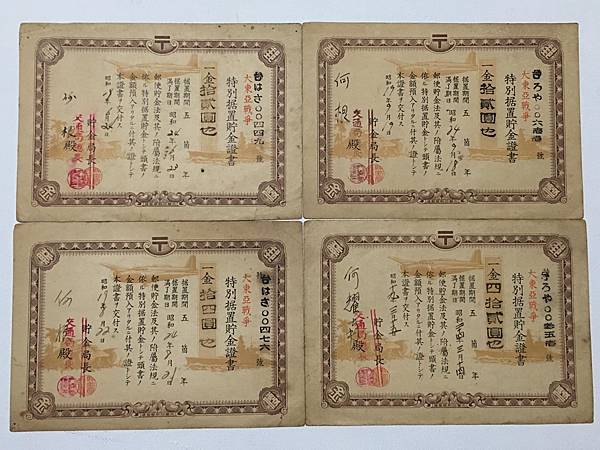 〒
台はさ〇〇四四九 號
大東亞戰爭
特別据置貯金證書
一金拾貳圓也
据置期間 五箇年
据置期間滿了期日 昭和 年 月 日
郵便貯金法及其ノ附屬法規ニ
依ル特別据置貯金トシテ頭書ノ
金額預入アリタルニ付其ノ證トシテ
本證書ヲ交付ス
昭和
貯金局長
殿
〒
號
大東亞戰爭
特別据置貯金證書
一金拾貳圓也
据置期間 五箇年
据置期間滿了期日 昭和24年9月 日
郵便貯金法及其ノ附屬法規ニ
依ル特別据置貯金トシテ頭書ノ
金額預入アリタルニ付其ノ證トシテ
本證書ヲ交付ス
昭和19年9月9日
貯金局長
交通局
何 殿
〒
台はさ〇〇四七六 號
大東亞戰爭
特別据置貯金證書
一金拾四圓也
据置期間 五箇年
据置期間滿了期日 昭和 年 月21日
郵便貯金法及其ノ附屬法規ニ
依ル特別据置貯金トシテ頭書ノ
金額預入アリタルニ付其ノ證トシテ
本證書ヲ交付ス
昭和
貯金局長
交通局
何 殿
〒
號
大東亞戰爭
特別据置貯金證書
一金四拾貳圓也
据置期間 五箇年
据置期間滿了期日 昭和 年 月 日
郵便貯金法及其ノ附屬法規ニ
依ル特別据置貯金トシテ頭書ノ
金額預入アリタルニ付其ノ證トシテ
本證書ヲ交付ス
昭和
貯金局長
交通局
何耀 殿